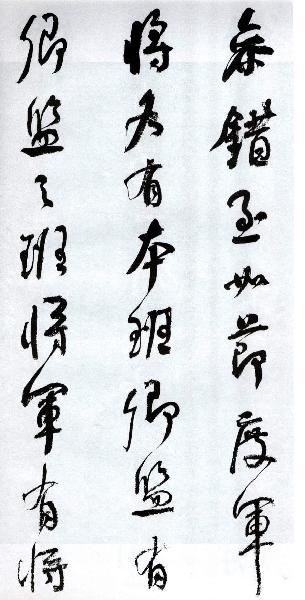 參錯至如節度軍
將各有本班卿監有
卿監之班將軍有將